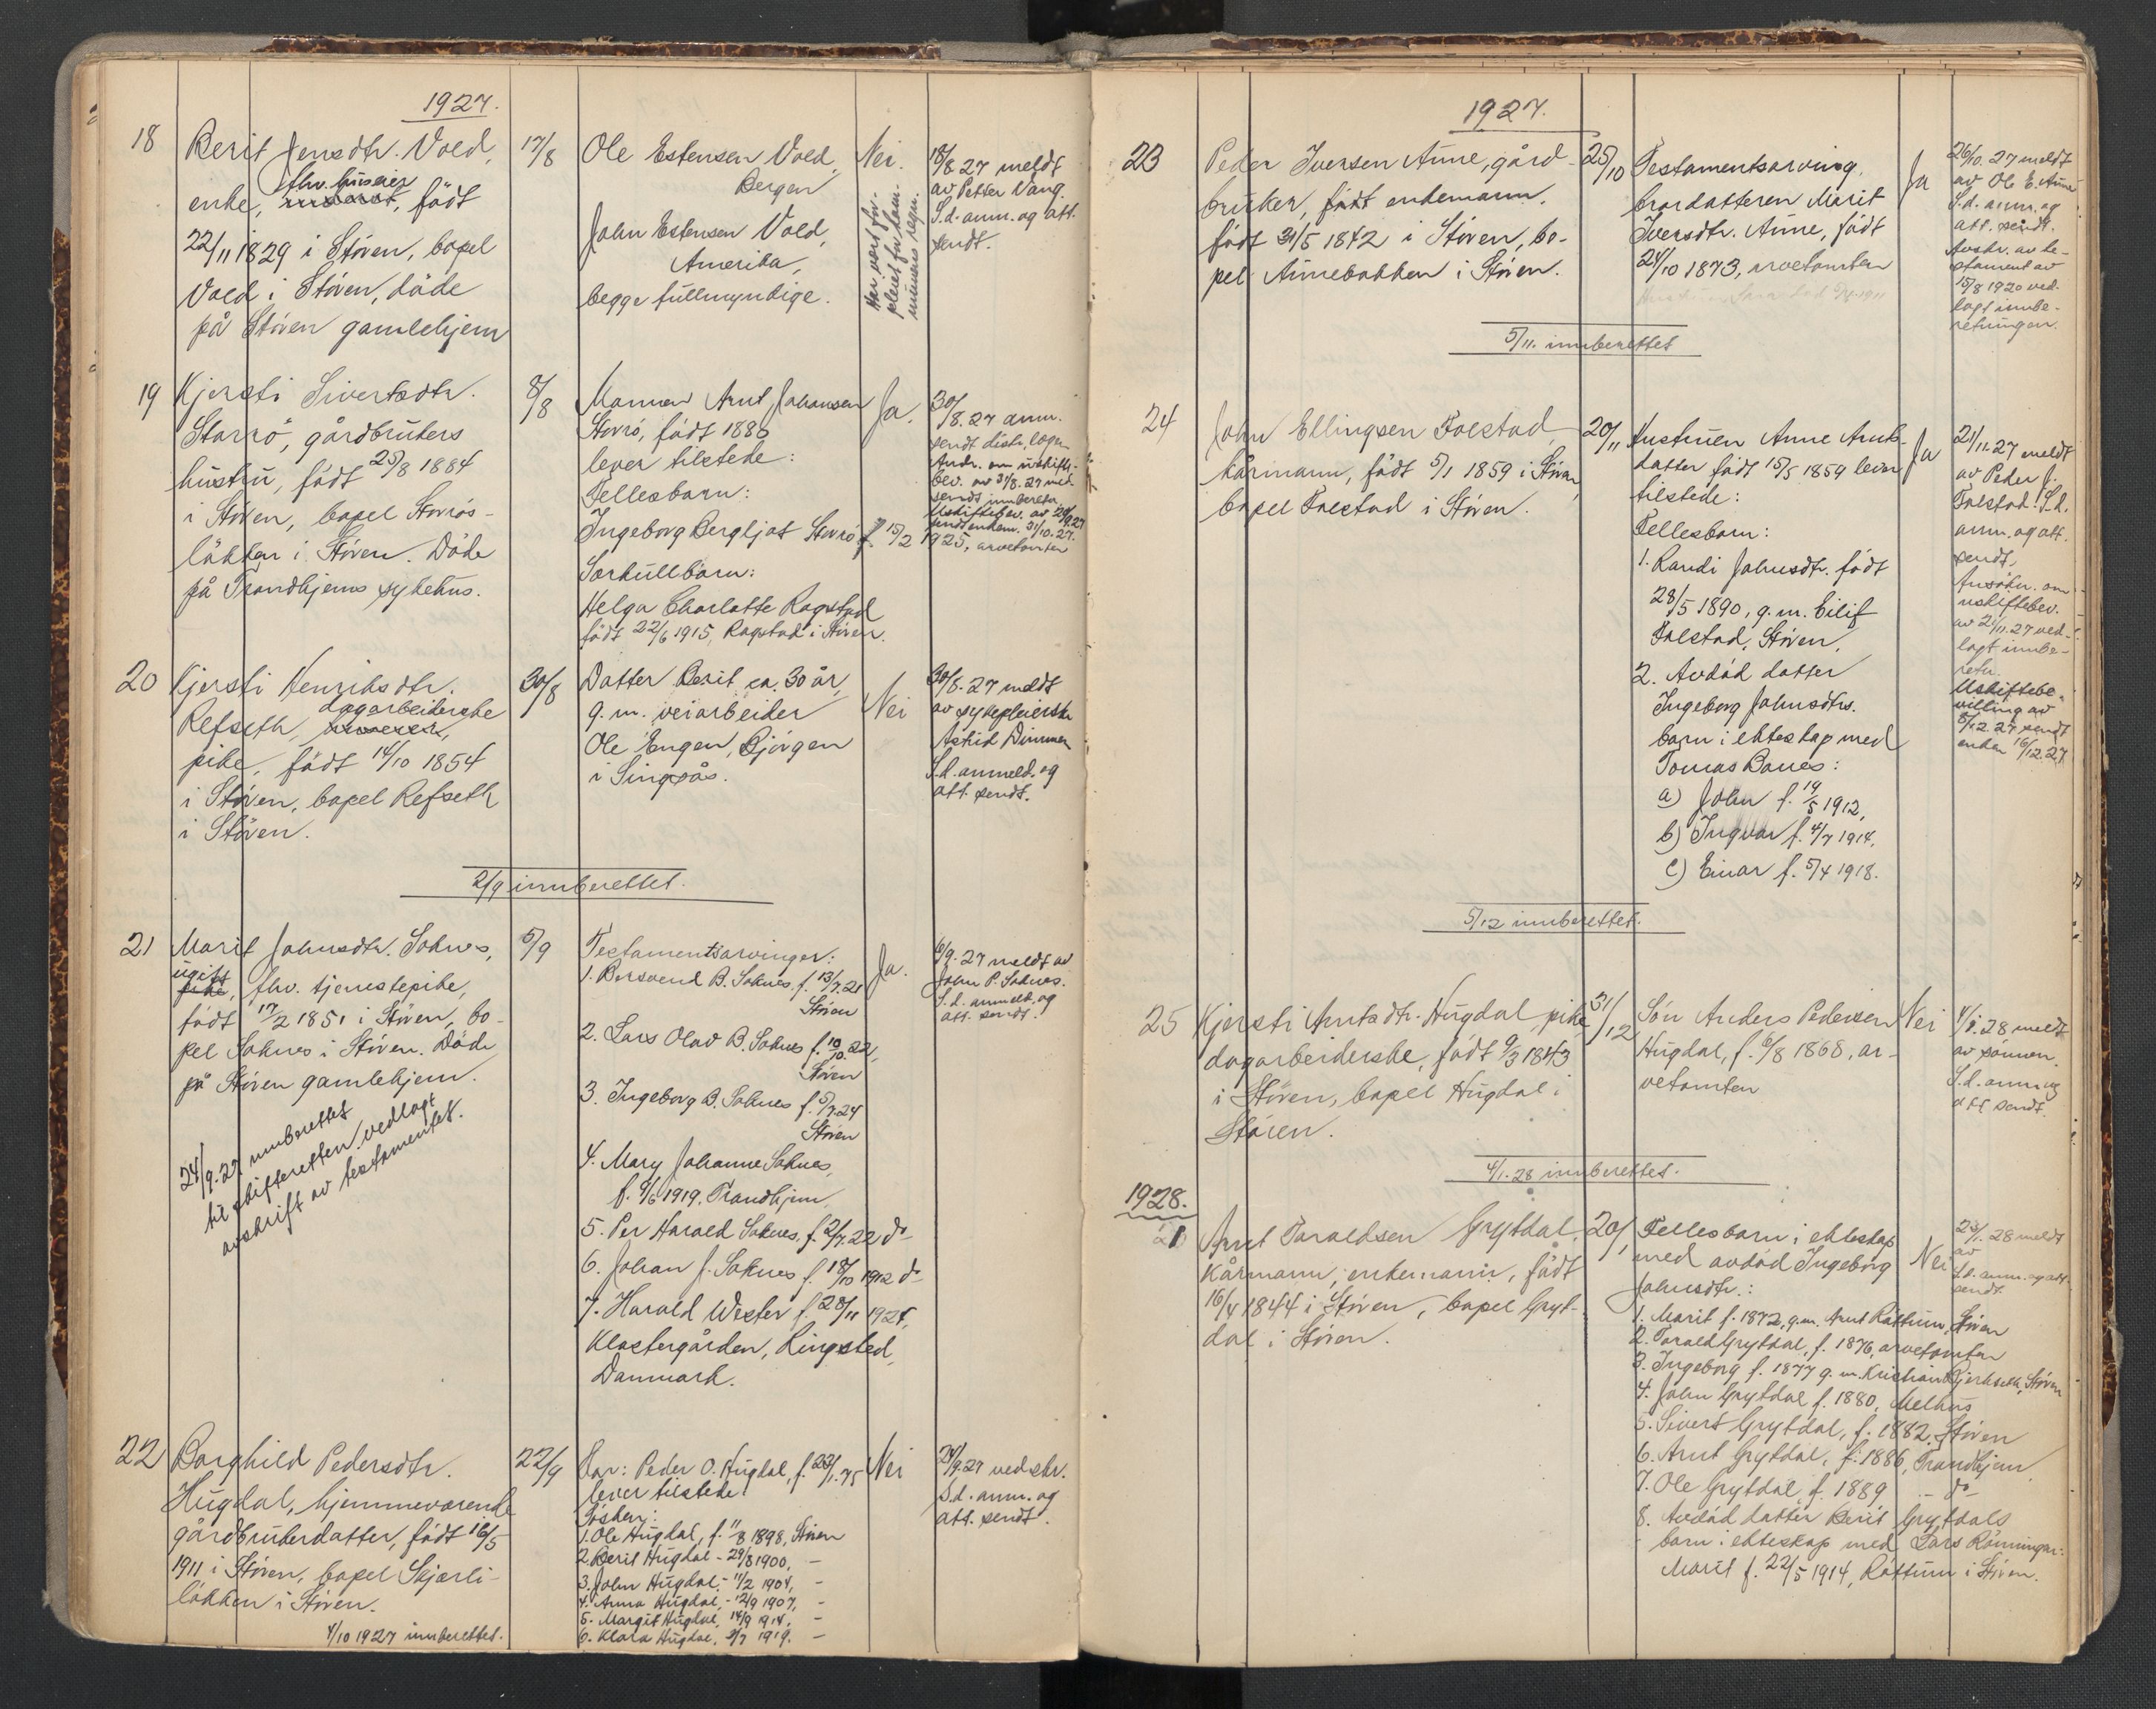 1927.
18
Berit Jensdtr. Vold,
fhv. huseier
enke, født
22/11 1829 i Støren, bopel
Vold i Støren, døde
på Støren gamlehjem
17/8
Ole Estensen Vold,
Bergen
John Estensen Vold,
Amerika,
begge fullmyndige.
Nei.
Har vært for-
pleiet for kom-
munens regn.
18/8 27 meldt
av Petter Vang.
S.d. anm. og att.
sendt.
19
Kjersti Sivertsdtr.
Storrø, gårdbrukers
hustru, født 25/8 1884
i Støren, bopel Storrøs-
løkken i Støren. Døde
på Trondhjems sykehus.
8/8
Mannen Arnt Johansen
Storrø, født 1880
lever tilstede:
Fellesbarn:
Ingeborg Bergljot Storrø f. 15/2 1925, arvetomten
Særkullbarn:
Helga Charlotte Rogstad
født 22/6 1915, Rogstad i Støren.
Ja.
30/8.27 anm.
sendt distr. legen
Andr. om uskifte-
bev. av 31/8.27 med-
sendt innberetn.
Uskiftebev. av 24/9.27
sendt enkem. 31/10.27.
20
Kjersti Henriksdtr.
dagarbeiderske
Refseth,
pike, født 14/10 1854
i Støren, bopel Refseth
i Støren.
30/8
Datter Berit ca. 30 år,
g. m. veiarbeider
Ole Engen, Bjørgen
i Singsås.
Nei
30/8.27 meldt
av sykepleierske
Astrid Dimmen
S.d. anmeld. og
att. sendt.
2/9 innberettet.
21
Marit Johnsdtr. Soknes,
ugift
pike, fhv. tjenestepike,
født 17/2 1851 i Støren, bo-
pel Soknes i Støren. Døde
på Støren gamlehjem.
24/9.27 innberettet
til skifteretten vedlagt
avskrift av testamentet.
5/9
Testamentsarvinger:
1. Borsvend B. Soknes, f. 13/7.21
Støren
2. Lars Olav B. Soknes f. 10/10.22,
Støren
3. Ingeborg B. Soknes f. 5/7.24
Støren
4. Mary Johanne Soknes,
f. 9/6 1919. Trondhjem
5. Per Harald Soknes, f. 2/7.22 do
6. Johan J. Soknes f. 18/10 1912 do
7. Harald Wester f. 28/11 1924,
Klostergården, Ringsted,
Danmark.
Ja.
6/9.27 meldt av
John P. Soknes.
S.d. anmeld. og
att. sendt.
22
Borghild Pedersdtr.
Hugdal, hjemmeværende
gårdbrukerdatter, født 16/5
1911 i Støren, bopel Skjærli-
løkken i Støren.
4/10 1927 innberettet.
22/9
Far: Peder O. Hugdal, f. 23/1.75
lever tilstede.
Søsken:
1. Ole Hugdal, f. 11/8 1898, Støren
2. Berit Hugdal - 29/8 1900, –
3. John Hugdal, - 11/2 1904, –
4. Anna Hugdal, - 12/9 1907, –
5. Margit Hugdal, 14/9 1914, –
6. Klara Hugdal, 3/7 1919. –
Nei
24/9.27 ved skr.
S.d. anm. og
att. sendt.
1927.
23
Peder Iversen Aune, gård-
bruker, født enkemann,
født 31/5 1842 i Støren, bo-
pel Aunebakken i Støren.
25/10
Testamentsarving,
brordatteren Marit
Iversdtr. Aune, født
24/10 1873, arvetomten
Ja
26/10.27 meldt
av Ole E. Aune
S.d. anm. og
att. sendt.
Avskr. av te-
stament av
15/8 1920 ved-
lagt innbe-
retningen.
5/11. innberettet
24
John Ellingsen Folstad,
kårmann, født 5/1 1859 i Støren,
bopel Folstad i Støren.
20/11
Hustruen Anne Arnts-
datter født 15/5 1859 lever
tilstede:
Fellesbarn:
1. Randi Johnsdtr. født
28/5 1890, g. m. Eilif
Folstad, Støren.
2. Avdød datter
Ingeborg Johnsdtrs.
barn i ekteskap med
Tomas Bones:
a) John f. 19/5 1912,
b) Ingvar f. 4/7 1914,
c) Einar f. 5/4 1918.
Ja
21/11.27 meldt
av Peder J.
Folstad. S.d.
anm. og att.
sendt.
Ansøkn. om
uskiftebev.
av 21/11.27 ved-
lagt innbe-
retn.
Uskiftebe-
villing av
8/12.27 sendt
enken 16/12.27.
5/12 innberettet.
25
Kjersti Arntsdtr. Hugdal, pike
dagarbeiderske, født 9/3 1843
i Støren, bopel Hugdal i
Støren.
31/12
Søn Anders Pedersen
Hugdal, f. 6/8 1868, ar-
vetomten
Nei
4/1.28 meldt
av sønnen
S.d. anm. og
att sendt.
4/1.28 innberettet.
1928.
1
Arnt Taraldsen Grytdal,
Kårmann, enkemann, født
16/4 1844 i Støren, bopel Gryt-
dal i Støren.
20/1
Fellesbarn i ekteskap
med avdød Ingeborg
Johnsdtr.:
1. Marit f. 1872, g.m. Arnt Råttum, Støren
2. Tarald Grytdal, f. 1876, arvetomten
3. Ingeborg f. 1877 g. m. Kristian Bjerkseth, Støren
4. John Grytdal f. 1880, Melhus
5. Sivert Grytdal, f. 1882, Støren
6. Arnt Grytdal, f. 1886, Trondhjem
7. Ole Grytdal f. 1889 – do –
8. Avdød datter Berit Grytdals
barn i ekteskap med Lars Rønningen:
Marit f. 22/5 1914, Råttum i Støren.
Nei
23/1.28 meldt
av
S.d. anm. og att.
sendt.